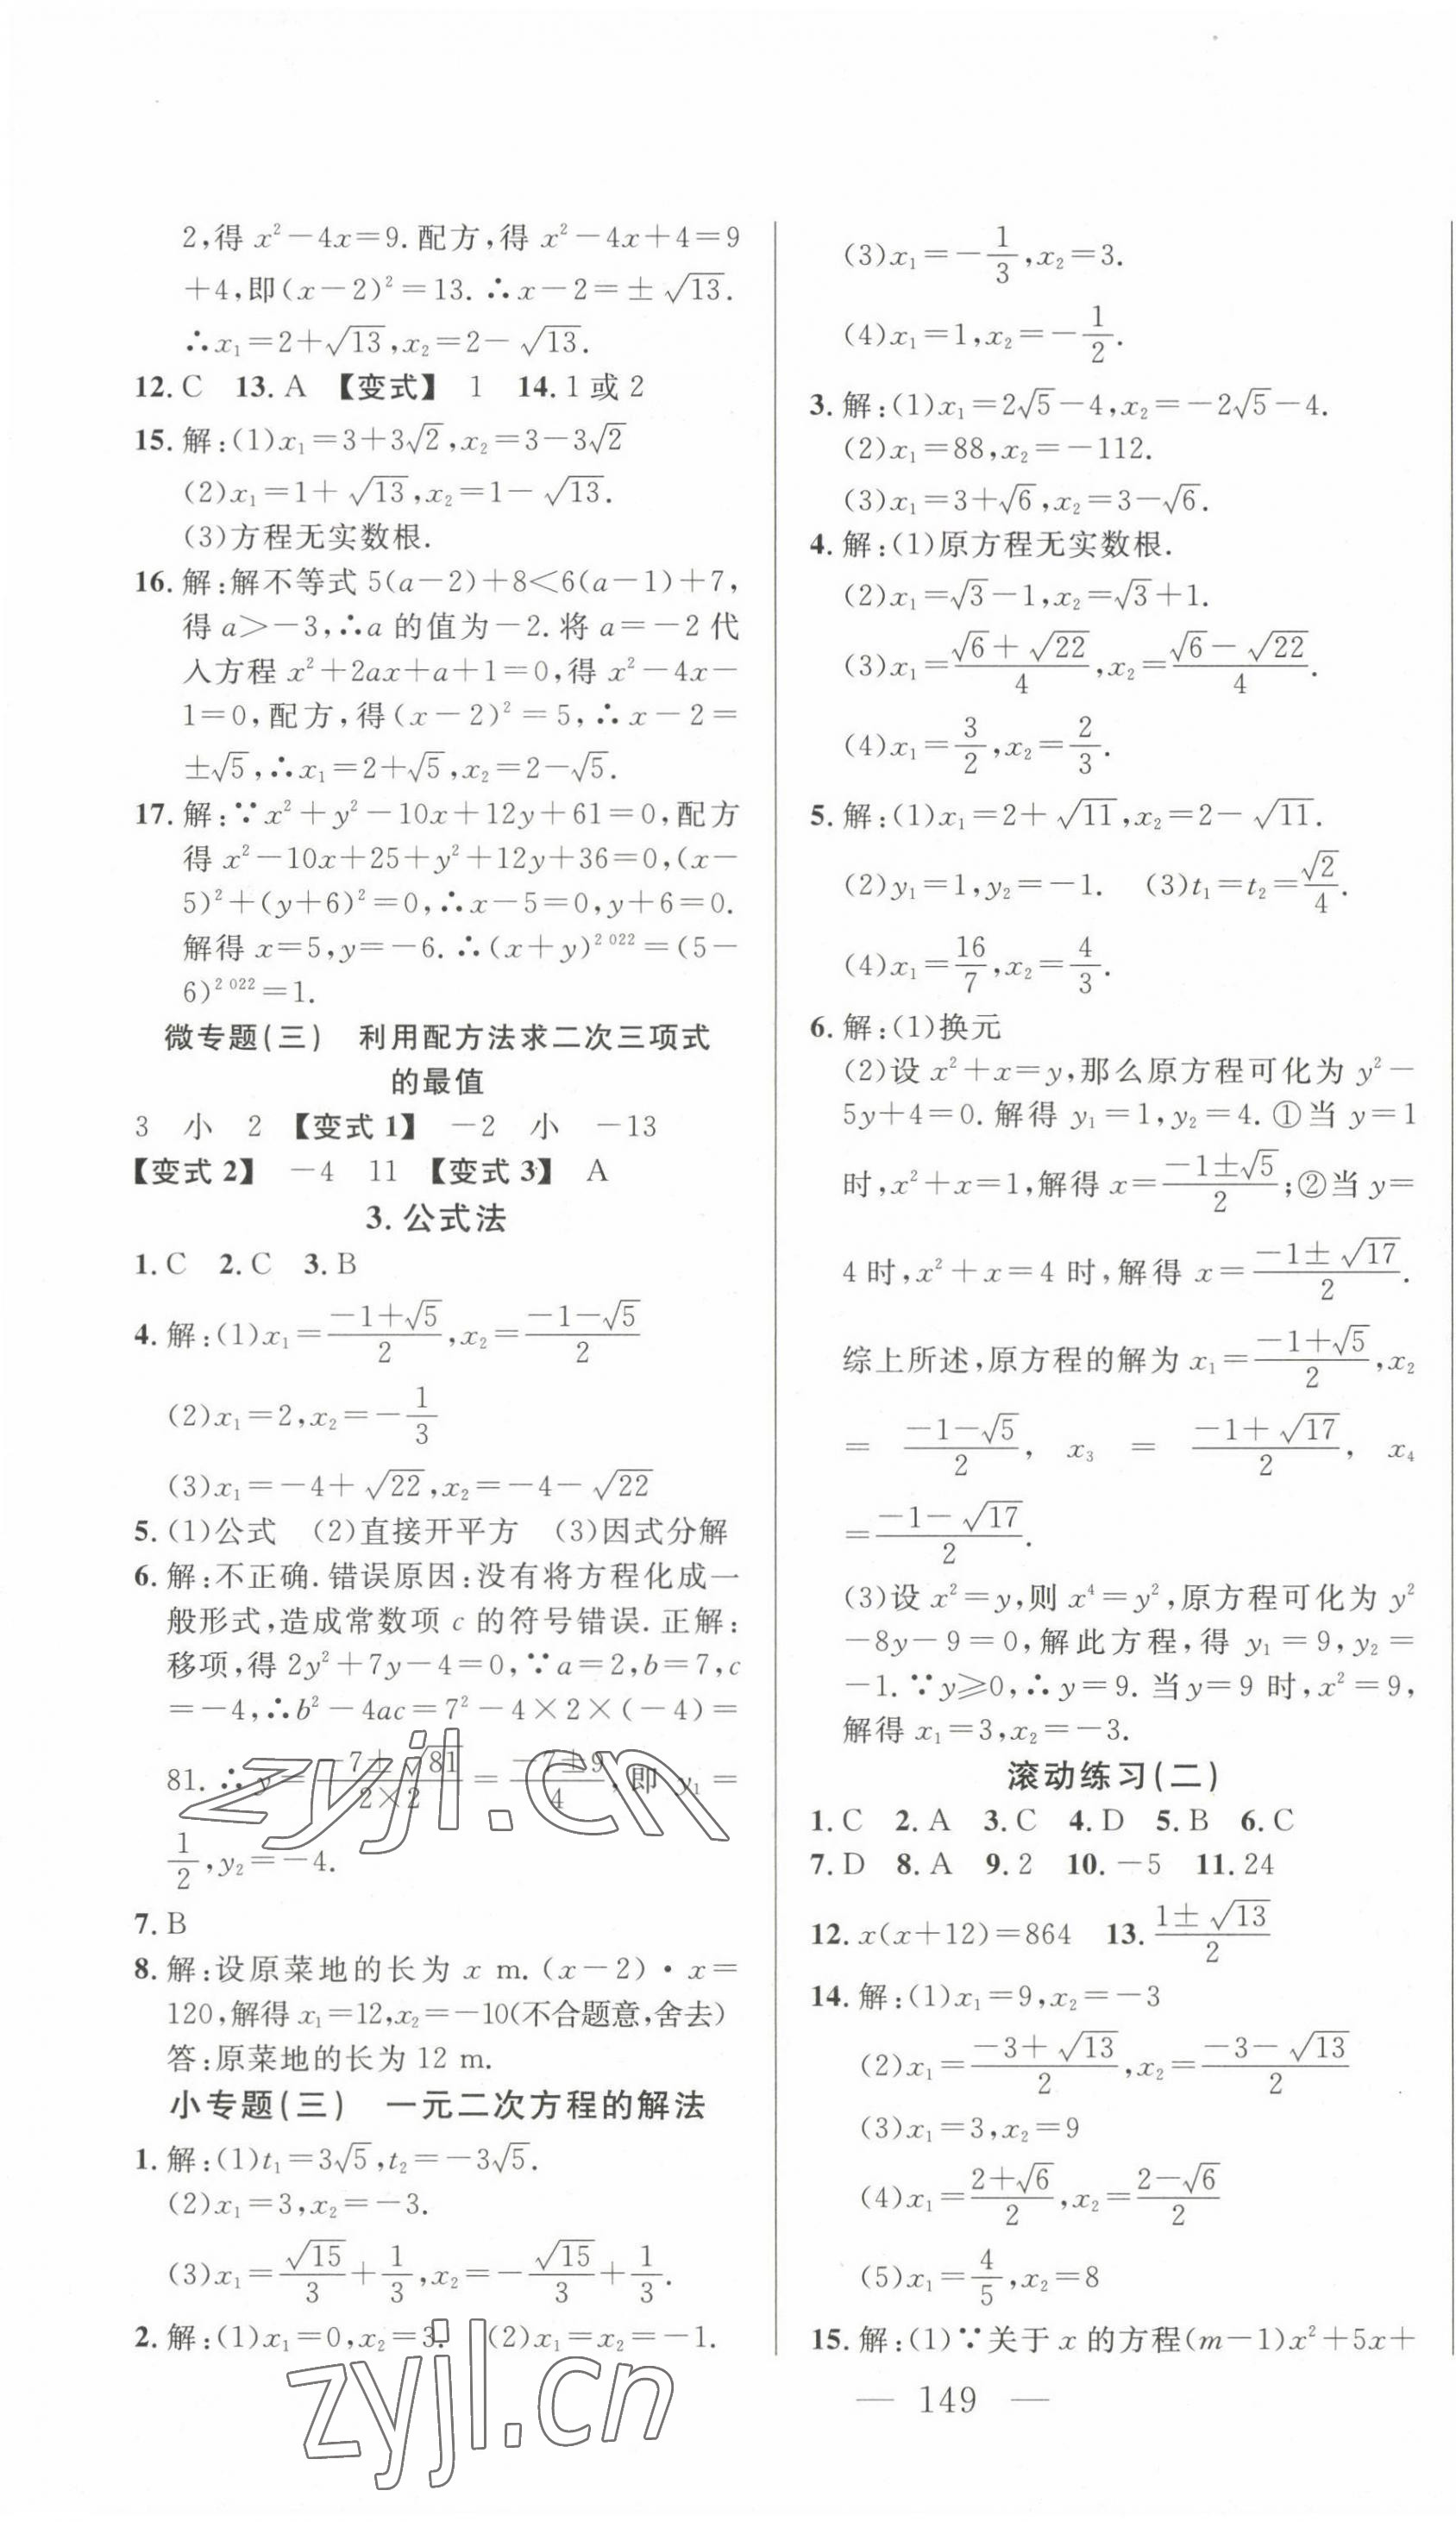 2,得 x²－4x＝9.配方,得 x²－4x＋4＝9
＋4,即(x－2)²＝13.∴x－2＝±√13.
∴x₁＝2＋√13,x₂＝2－√13.
12.C 13.A 【变式】 1 14.1或2
15.解:(1)x₁＝3＋3√2,x₂＝3－3√2
(2)x₁＝1＋√13,x₂＝1－√13.
(3)方程无实数根.
16.解:解不等式 5(a－2)＋8＜6(a－1)＋7,
得 a＞－3,∴a 的值为－2.将 a＝－2 代
入方程 x²＋2ax＋a＋1＝0,得 x²－4x－
1＝0,配方,得(x－2)²＝5,∴x－2＝
±√5,∴x₁＝2＋√5,x₂＝2－√5.
17.解:∵x²＋y²－10x＋12y＋61＝0,配方
得 x²－10x＋25＋y²＋12y＋36＝0,(x－
5)²＋(y＋6)²＝0,∴x－5＝0,y＋6＝0.
解得 x＝5,y＝－6.∴(x＋y)^2 022＝(5－
6)^2 022＝1.
微专题(三) 利用配方法求二次三项式
的最值
3 小 2 【变式1】 －2 小 －13
【变式2】 －4 11 【变式3】 A
3.公式法
1.C 2.C 3.B
4.解:(1)x₁＝(－1＋√5)/2,x₂＝(－1－√5)/2
(2)x₁＝2,x₂＝－1/3
(3)x₁＝－4＋√22,x₂＝－4－√22
5.(1)公式 (2)直接开平方 (3)因式分解
6.解:不正确.错误原因:没有将方程化成一
般形式,造成常数项 c 的符号错误.正解:
移项,得 2y²＋7y－4＝0,∵a＝2,b＝7,c
＝－4,∴b²－4ac＝7²－4×2×(－4)＝
81.∴y＝(－7±√81)/(2×2)＝(－7±9)/4,即 y₁＝
1/2,y₂＝－4.
7.B
8.解:设原菜地的长为 x m.(x－2)·x＝
120,解得 x₁＝12,x₂＝－10(不合题意,舍去)
答:原菜地的长为 12 m.
小专题(三) 一元二次方程的解法
1.解:(1)t₁＝3√5,t₂＝－3√5.
(2)x₁＝3,x₂＝－3.
(3)x₁＝√15/3＋1/3,x₂＝－√15/3＋1/3.
2.解:(1)x₁＝0,x₂＝3. (2)x₁＝x₂＝－1.
(3)x₁＝－1/3,x₂＝3.
(4)x₁＝1,x₂＝－1/2.
3.解:(1)x₁＝2√5－4,x₂＝－2√5－4.
(2)x₁＝88,x₂＝－112.
(3)x₁＝3＋√6,x₂＝3－√6.
4.解:(1)原方程无实数根.
(2)x₁＝√3－1,x₂＝√3＋1.
(3)x₁＝(√6＋√22)/4,x₂＝(√6－√22)/4.
(4)x₁＝3/2,x₂＝2/3.
5.解:(1)x₁＝2＋√11,x₂＝2－√11.
(2)y₁＝1,y₂＝－1. (3)t₁＝t₂＝√2/4.
(4)x₁＝16/7,x₂＝4/3.
6.解:(1)换元
(2)设 x²＋x＝y,那么原方程可化为 y²－
5y＋4＝0.解得 y₁＝1,y₂＝4.①当 y＝1
时,x²＋x＝1,解得 x＝(－1±√5)/2;②当 y＝
4 时,x²＋x＝4 时,解得 x＝(－1±√17)/2.
综上所述,原方程的解为 x₁＝(－1＋√5)/2,x₂
＝(－1－√5)/2, x₃＝(－1＋√17)/2, x₄
＝(－1－√17)/2.
(3)设 x²＝y,则 x⁴＝y²,原方程可化为 y²
－8y－9＝0,解此方程,得 y₁＝9,y₂＝
－1.∵y≥0,∴y＝9.当y＝9 时,x²＝9,
解得 x₁＝3,x₂＝－3.
滚动练习(二)
1.C 2.A 3.C 4.D 5.B 6.C
7.D 8.A 9.2 10.－5 11.24
12.x(x＋12)＝864 13.(1±√13)/2
14.解:(1)x₁＝9,x₂＝－3
(2)x₁＝(－3＋√13)/2,x₂＝(－3－√13)/2
(3)x₁＝3,x₂＝9
(4)x₁＝(2＋√6)/2,x₂＝(2－√6)/2
(5)x₁＝4/5,x₂＝8
15.解:(1)∵关于 x 的方程(m－1)x²＋5x＋
— 149 —
zyjl.cn
zyjl.cn